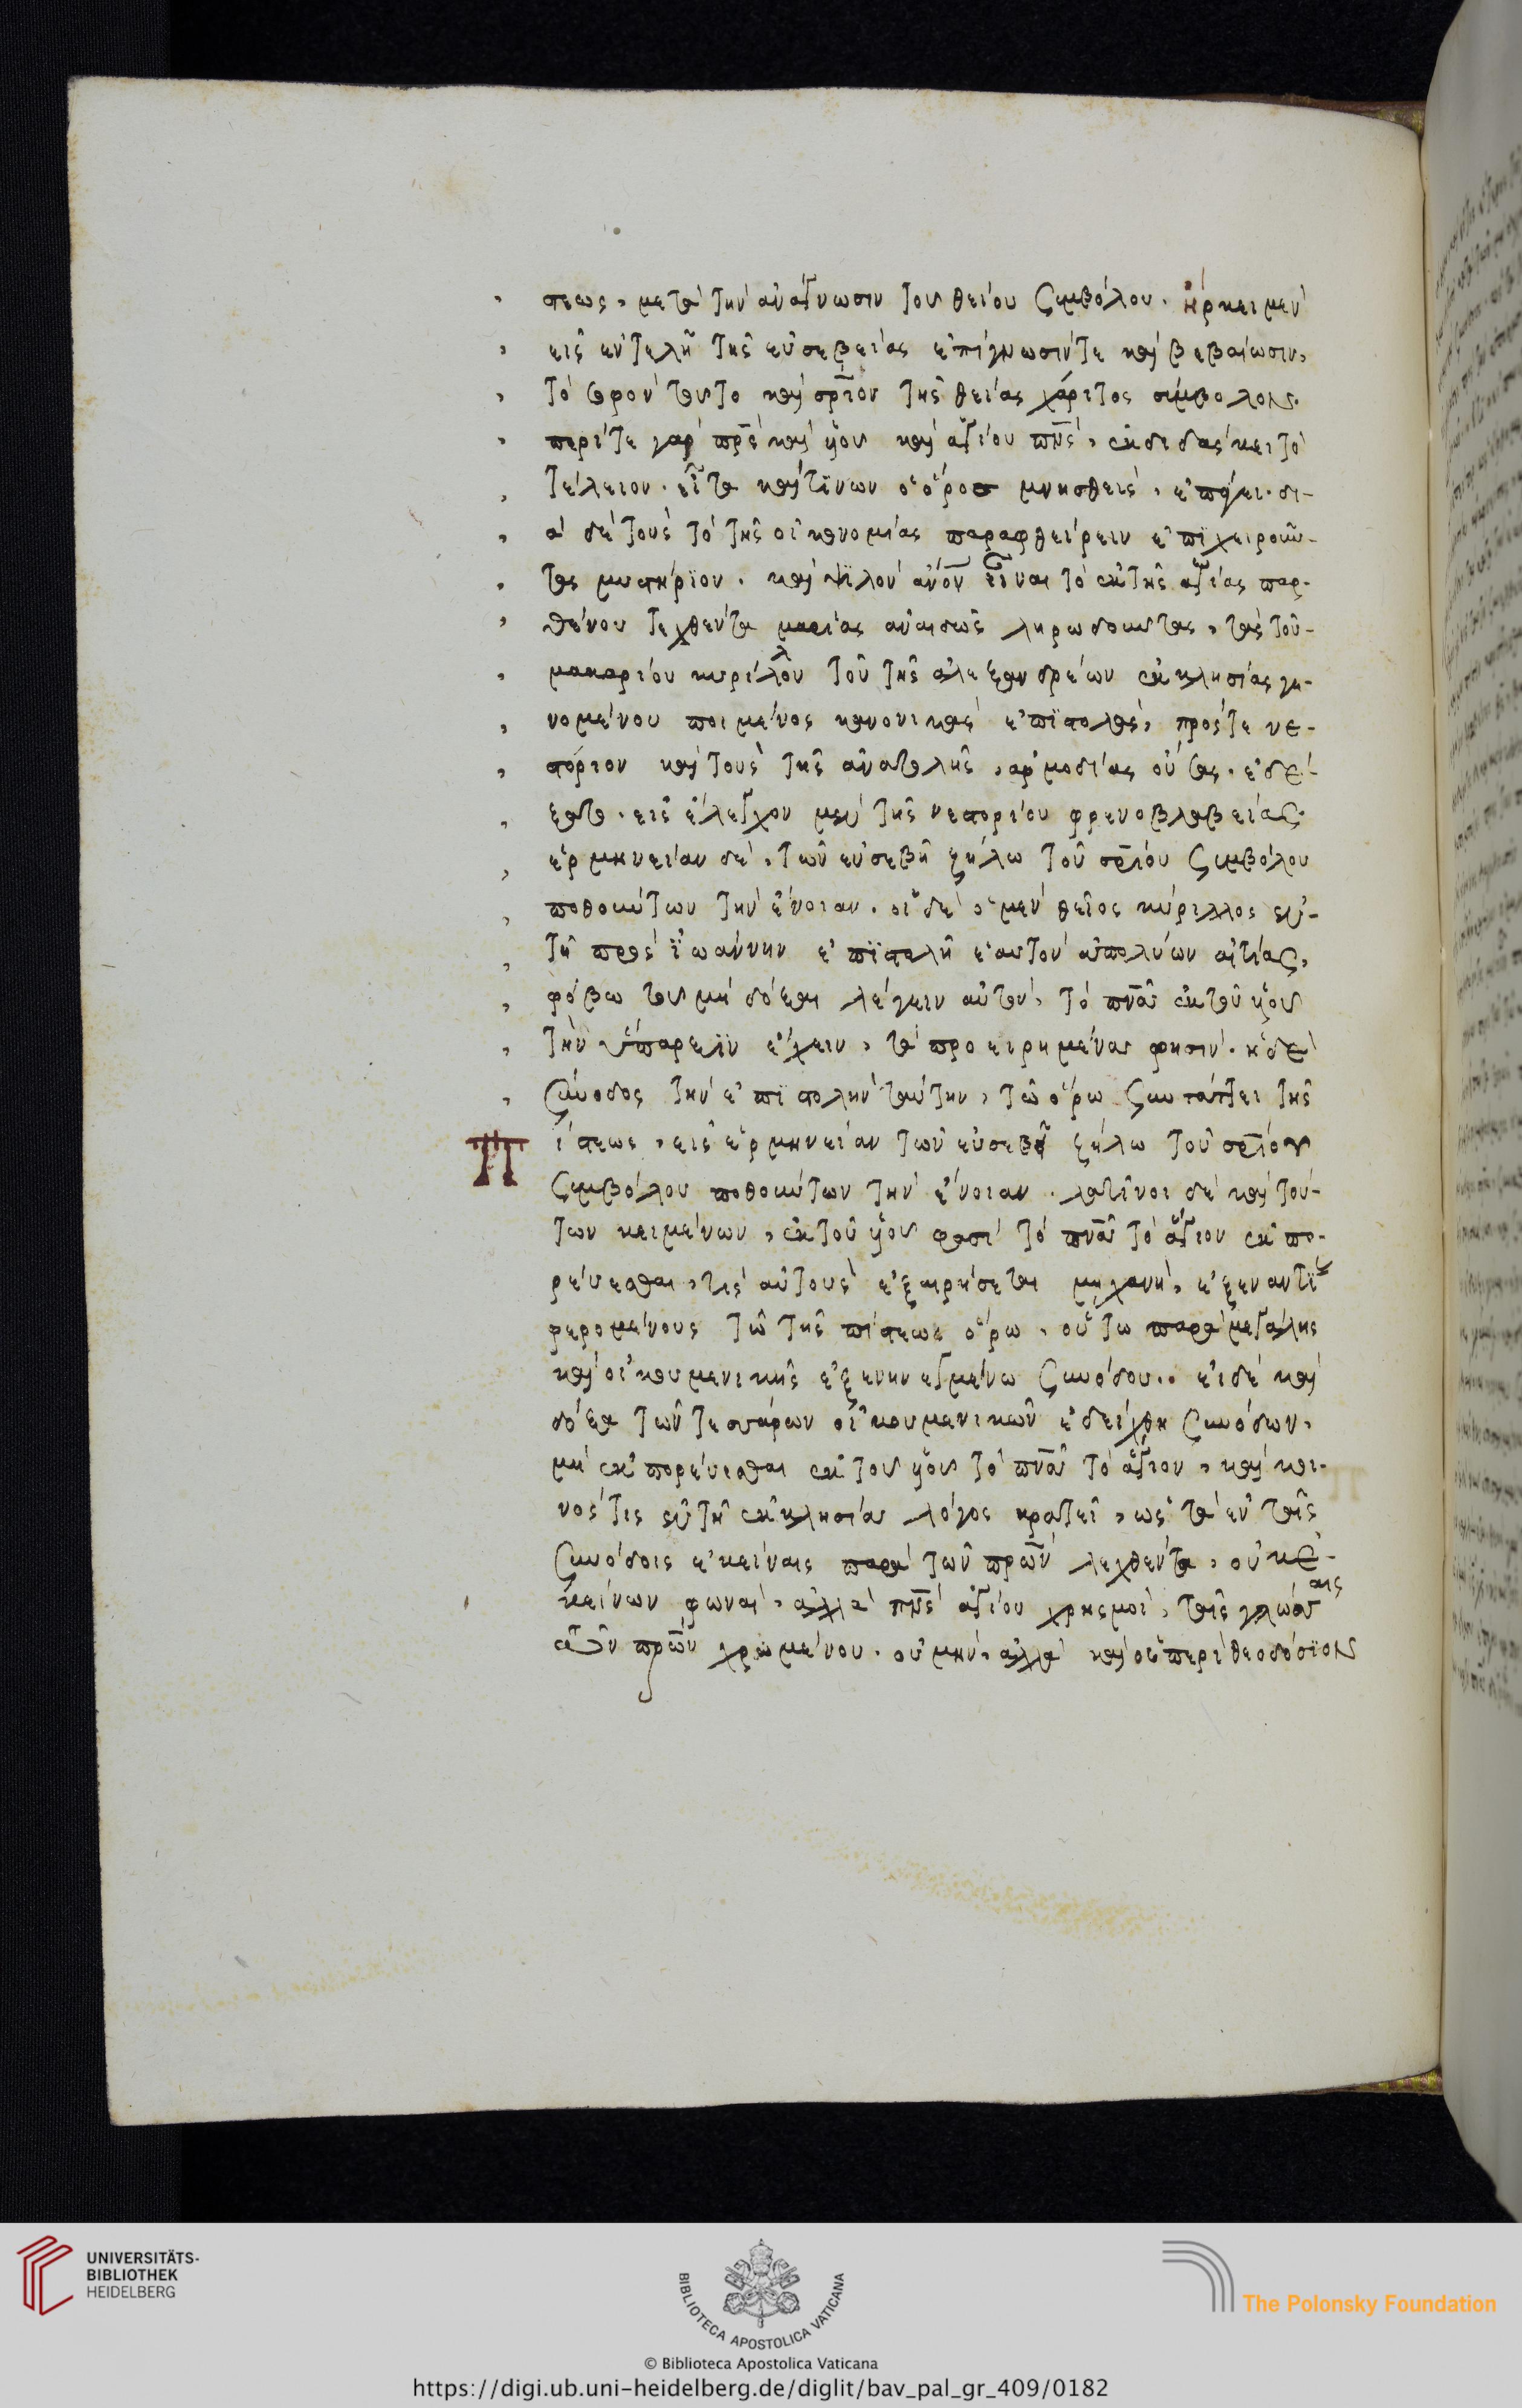 στεως, μετὰ τὴν ἀνάγνωσιν τοῦ θείου συμβόλου. ἤρκει μὲν
εἰς ἐντελῆ τῆς εὐσεβείας ἐπίγνωσίν τε καὶ βεβαίωσιν,
τὸ σοφὸν τοῦτο καὶ σρ̅ιον τῆς θείας χάριτος σύμβολον.
περί τε γὰρ πρ̅ς καὶ υἱοῦ καὶ ἁγίου πν̅ς, ἐκδιδάσκει τὸ
τέλειον. εἶτα καὶ τίνων ὁ ὅρος μνησθεὶς, ἐπάγει. δι-
ὰ δὲ τοὺς τὸ τῆς οἰκονομίας παραφθείρειν ἐπιχειροῦν-
τας μυστήριον. καὶ ψιλὸν ἀν̅ον εἶναι τὸ ἐκ τῆς ἁγίας παρ-
θένου τεχθέντα μαρίας ἀναιδῶς ληρωδοῦντας, τὰς τοῦ-
μακαρίου κυρίλλου τοῦ τῆς ἀλεξανδρέων ἐκκλησίας γε-
νομένου ποιμένος κανονικὰς ἐπϊστολὰς, πρός τε νε-
στόριον καὶ τοὺς τῆς ἀνατολῆς, ἁρμοδίας οὔσας. ἐδέ-
ξατο. εἰς ἔλεγχον μὲν τῆς νεστορίου φρενοβλαβείας.
ἑρμηνείαν δὲ, τῶν εὐσεβῆ ζήλω τοῦ σρ̅ιου συμβόλου
ποθούντων τὴν ἔνοιαν. οἱ δὲ ὁ μὲν θεῖος κύριλλος ἐν-
τῆ πρὸς ϊωάννην ἐπϊστολῆ ἑαυτὸν ἀπολύων αἰτίας,
φόβω τοῦ μὴ δόξαι λέγειν αὐτὸν, τὸ πν̅α ἐκ τοῦ υἱοῦ
τὴν ὕπαρξϊν ἔχειν, τὰ προειρημένα φησίν. ἡ δὲ
σύνοδος τὴν ἐπϊστολὴν ταύτην, τῶ ὅρω συντάττει τῆς
Πίστεως, εἰς ἑρμηνείαν τῶν εὐσεβῆ ζήλω τοῦ σρ̅ιου
συμβόλου ποθούντων τὴν ἔνοιαν. λατῖνοι δὲ καὶ τού-
των κειμένων, ἐκ τοῦ υἱοῦ φασὶ τὸ πν̅α τὸ ἅγιον ἐκπο-
ρεύεσθαι, τίς αὐτοὺς ἐξαιρήσεται μηχανὴ, ἐξ ἐναντί<ας>
φερομένους τῶ τῆς πίστεως ὅρω, οὕτω παρὰ μεγάλης
καὶ οἰκουμενικῆς ἐξενηνεγμένω συνόδου.. εἰ δὲ καὶ
δόξα τῶν τεσσάρων οἰκουμενικῶν ἐδείχθη συνόδων,
μὴ ἐκπορεύεσθαι ἐκ τοῦ υἱοῦ τὸ πν̅α τὸ ἅγιον, καὶ κοι-
νός τις ἐν τῆ ἐκκλησία λόγος κρατεῖ, ὡς τὰ ἐν ταῖς
συνόδοις ἐκείναις παρὰ τῶν πρ̅ων λεχθέντα, οὐκ ἐ-
κείνων φωναὶ, ἀλλὰ πν̅ς ἁγίου χρησμοὶ, ταῖς γλώσσαις
τῶν πρ̅ων χρωμένου. οὐ μὴν, ἀλλὰ καὶ οἱ περὶ θεοδόσϊον
UNIVERSITÄTS-
BIBLIOTHEK
HEIDELBERG
BIBLIOTECA APOSTOLICA VATICANA
The Polonsky Foundation
© Biblioteca Apostolica Vaticana
https://digi.ub.uni-heidelberg.de/diglit/bav_pal_gr_409/0182